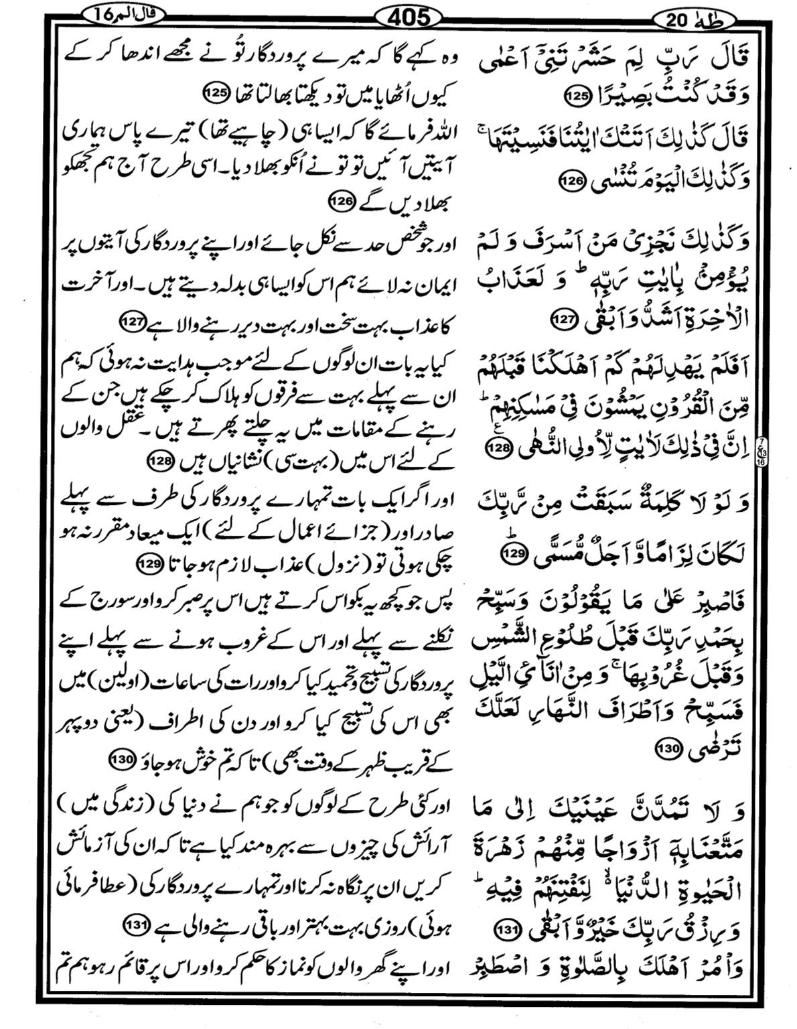 طٰهٰ 20
405
قال الم 16
قَالَ رَبِّ لِمَ حَشَرْتَنِیْۤ اَعْمٰی
وَقَدْ كُنْتُ بَصِیْرًا 125
قَالَ كَذٰلِكَ اَتَتْكَ اٰیٰتُنَا فَنَسِیْتَهَا ۚ
وَكَذٰلِكَ الْیَوْمَ تُنْسٰی 126
وَكَذٰلِكَ نَجْزِیْ مَنْ اَسْرَفَ وَ لَمْ
یُؤْمِنْۢ بِاٰیٰتِ رَبِّهٖ ؕ وَ لَعَذَابُ
الْاٰخِرَةِ اَشَدُّ وَاَبْقٰی 127
اَفَلَمْ یَهْدِ لَهُمْ كَمْ اَهْلَكْنَا قَبْلَهُمْ
مِّنَ الْقُرُوْنِ یَمْشُوْنَ فِیْ مَسٰكِنِهِمْ ؕ
اِنَّ فِیْ ذٰلِكَ لَاٰیٰتٍ لِّاُولِی النُّهٰی 128 ع
وَ لَوْ لَا كَلِمَةٌ سَبَقَتْ مِنْ رَّبِّكَ
لَكَانَ لِزَامًا وَّاَجَلٌ مُّسَمًّی 129 ؕ
فَاصْبِرْ عَلٰی مَا یَقُوْلُوْنَ وَسَبِّحْ
بِحَمْدِ رَبِّكَ قَبْلَ طُلُوْعِ الشَّمْسِ
وَقَبْلَ غُرُوْبِهَا ۚ وَمِنْ اٰنَآئِ الَّیْلِ
فَسَبِّحْ وَاَطْرَافَ النَّهَارِ لَعَلَّكَ
تَرْضٰی 130
وَ لَا تَمُدَّنَّ عَیْنَیْكَ اِلٰی مَا
مَتَّعْنَا بِهٖۤ اَزْوَاجًا مِّنْهُمْ زَهْرَةَ
الْحَیٰوةِ الدُّنْیَا ۙ لِنَفْتِنَهُمْ فِیْهِ ؕ
وَرِزْقُ رَبِّكَ خَیْرٌ وَّاَبْقٰی 131
وَاْمُرْ اَهْلَكَ بِالصَّلٰوةِ وَ اصْطَبِرْ
وہ کہے گا کہ میرے پروردگار تُو نے مجھے اندھا کر کے
کیوں اُٹھایا میں تو دیکھتا بھالتا تھا 125
اللہ فرمائے گا کہ ایسا ہی (چاہیے تھا) تیرے پاس ہماری
آیتیں آئیں تو تو نے اُنکو بھلا دیا۔ اسی طرح آج ہم تجھکو
بھلا دیں گے 126
اور جو شخص حد سے نکل جائے اور اپنے پروردگار کی آیتوں پر
ایمان نہ لائے ہم اس کو ایسا ہی بدلہ دیتے ہیں۔ اور آخرت
کا عذاب بہت سخت اور بہت دیر رہنے والا ہے 127
کیا یہ بات ان لوگوں کے لئے موجب ہدایت نہ ہوئی کہ ہم
ان سے پہلے بہت سے فرقوں کو ہلاک کر چکے ہیں جن کے
رہنے کے مقامات میں یہ چلتے پھرتے ہیں۔ عقل والوں
کے لئے اس میں (بہت سی) نشانیاں ہیں 128
اور اگر ایک بات تمہارے پروردگار کی طرف سے پہلے
صادر اور (جزائے اعمال کے لئے) ایک میعاد مقرر نہ ہو
چکی ہوتی تو (نزول) عذاب لازم ہو جاتا 129
پس جو کچھ یہ بکواس کرتے ہیں اس پر صبر کرو اور سورج کے
نکلنے سے پہلے اور اس کے غروب ہونے سے پہلے اپنے
پروردگار کی تسبیح و تحمید کیا کرو اور رات کی ساعات (اولین) میں
بھی اس کی تسبیح کیا کرو اور دن کی اطراف (یعنی دوپہر
کے قریب ظہر کے وقت بھی) تا کہ تم خوش ہو جاؤ 130
اور کئی طرح کے لوگوں کو جو ہم نے دنیا کی (زندگی میں)
آرائش کی چیزوں سے بہرہ مند کیا ہے تا کہ ان کی آزمائش
کریں ان پر نگاہ نہ کرنا اور تمہارے پروردگار کی (عطا فرمائی
ہوئی) روزی بہت بہتر اور باقی رہنے والی ہے 131
اور اپنے گھر والوں کو نماز کا حکم کرو اور اس پر قائم رہو ہم تم